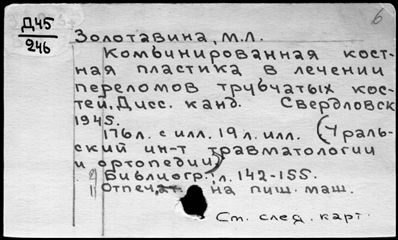 Д45
246
6
Золотавина, М.Л.
Комбинированная кост-
ная пластика в лечении
переломов трубчатых кос-
тей. Дисс. канд. Свердловск
1945.
176л. с илл. 19л. илл. (Ураль-
ский ин-т травматологии
и ортопедии)
Библиогр.: л. 142-155.
Отпечат. на пиш. маш.
См. след. карт.